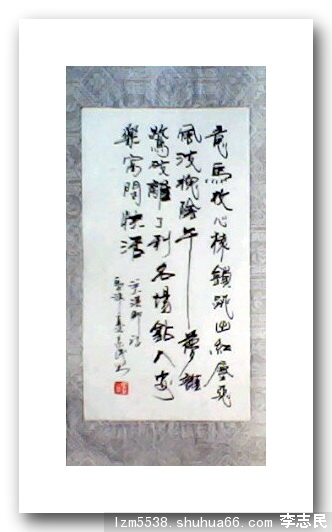 意馬收心猿鎖跳出紅塵惡
風波槐陰午夢誰
驚破離了利名場鑽入安
樂窩閑快活
关漢卿詩
志民书
lzm5538.shuhua66.com 李志民